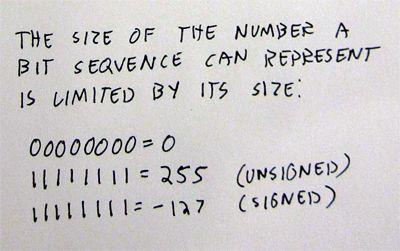 THE SIZE OF THE NUMBER A
BIT SEQUENCE CAN REPRESENT
IS LIMITED BY ITS SIZE:
00000000 = 0
11111111 = 255 (UNSIGNED)
11111111 = -127 (SIGNED)